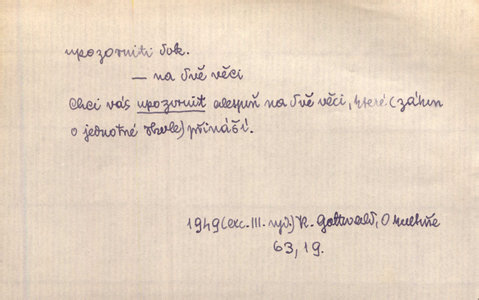 upozorniti dok.
— na dvě věci
Chci vás upozornit alespoň na dvě věci, které (zákon
o jednotné škole) přináší.
1949 (exc. III. vyd.) K. Gottwald, O kultuře
63, 19.